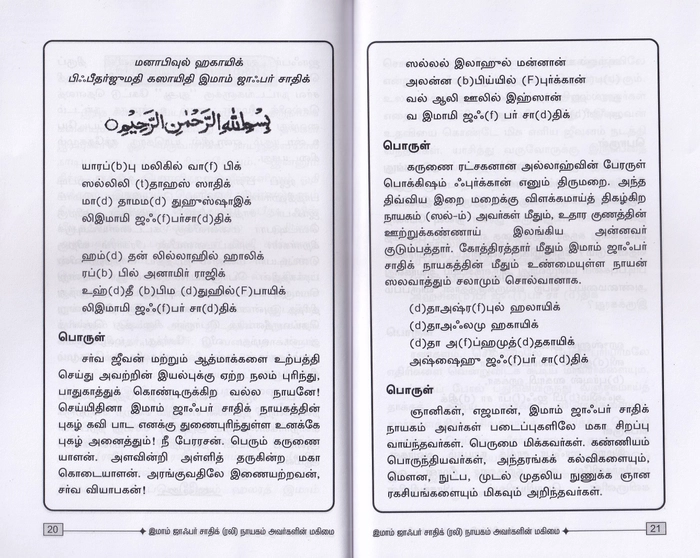 மனாபிவுல் ஹகாயிக்
பிஃபீதர்ஜுமதி கஸாயிதி இமாம் ஜாஃபர் சாதிக்
بسم الله الرحمن الرحيم
யாரப்(b)பு மலிகில் வா(f) பிக்
ஸல்லிலி (t)தாஹஸ் ஸாதிக்
மா(d) தாமம(d) துஹுஸ்ஷாஇக்
லிஇமாமி ஜஃ(f)பர்சா(d)திக்
ஹம்(d) தன் லில்லாஹில் ஹாலிக்
ரப்(b) பில் அனாமிர் ராஜிக்
உஹ்(d)தீ (b)பிம (d)துஹில்(F)பாயிக்
லிஇமாமி ஜஃ(f)பர் சா(d)திக்
பொருள்
சர்வ ஜீவன் மற்றும் ஆத்மாக்களை உற்பத்தி
செய்து அவற்றின் இயல்புக்கு ஏற்ற நலம் புரிந்து,
பாதுகாத்துக் கொண்டிருக்கிற வல்ல நாயனே!
செய்யிதினா இமாம் ஜாஃபர் சாதிக் நாயகத்தின்
புகழ் கவி பாட எனக்கு துணைபுரிந்துள்ள உனக்கே
புகழ் அனைத்தும்! நீ பேரரசன். பெரும் கருணை
யாளன். அளவின்றி அள்ளித் தருகின்ற மகா
கொடையாளன். அரங்குவதிலே இணையற்றவன்,
சர்வ வியாபகன்!
20
இமாம் ஜாஃபர் சாதிக் (ரலி) நாயகம் அவர்களின் மகிமை
ஸல்லல் இலாஹுல் மன்னான்
அலன்ன (b)பிய்யில் (F)புர்க்கான்
வல் ஆலி ஊலில் இஹ்ஸான்
வ இமாமி ஜஃ(f) பர் சா(d)திக்
பொருள்
கருணை ரட்சகனான அல்லாஹ்வின் பேரருள்
பொக்கிஷம் ஃபுர்க்கான் எனும் திருமறை. அந்த
திவ்விய இறை மறைக்கு விளக்கமாய்த் திகழ்கிற
நாயகம் (ஸல்-ம்) அவர்கள் மீதும், உதார குணத்தின்
ஊற்றுக்கண்ணாய் இலங்கிய அன்னவர்
குடும்பத்தார். கோத்திரத்தார் மீதும் இமாம் ஜாஃபர்
சாதிக் நாயகத்தின் மீதும் உண்மையுள்ள நாயன்
ஸலவாத்தும் சலாமும் சொல்வானாக.
(d)தாஅஷ்ர(f)புல் ஹலாயிக்
(d)தாஅஃலமு ஹகாயிக்
(d)தா அ(f)ப்ஹமுத்(d)தகாயிக்
அஷ்ஷைஹு ஜஃ(f)பர் சா(d)திக்
பொருள்
ஞானிகள், எஜமான், இமாம் ஜாஃபர் சாதிக்
நாயகம் அவர்கள் படைப்புகளிலே மகா சிறப்பு
வாய்ந்தவர்கள். பெருமை மிக்கவர்கள். கண்ணியம்
பொருந்தியவர்கள், அந்தரங்கக் கல்விகளையும்,
மௌன, நுட்ப, முடல் முதலிய நுணுக்க ஞான
ரகசியங்களையும் மிகவும் அறிந்தவர்கள்.
இமாம் ஜாஃபர் சாதிக் (ரலி) நாயகம் அவர்களின் மகிமை
21